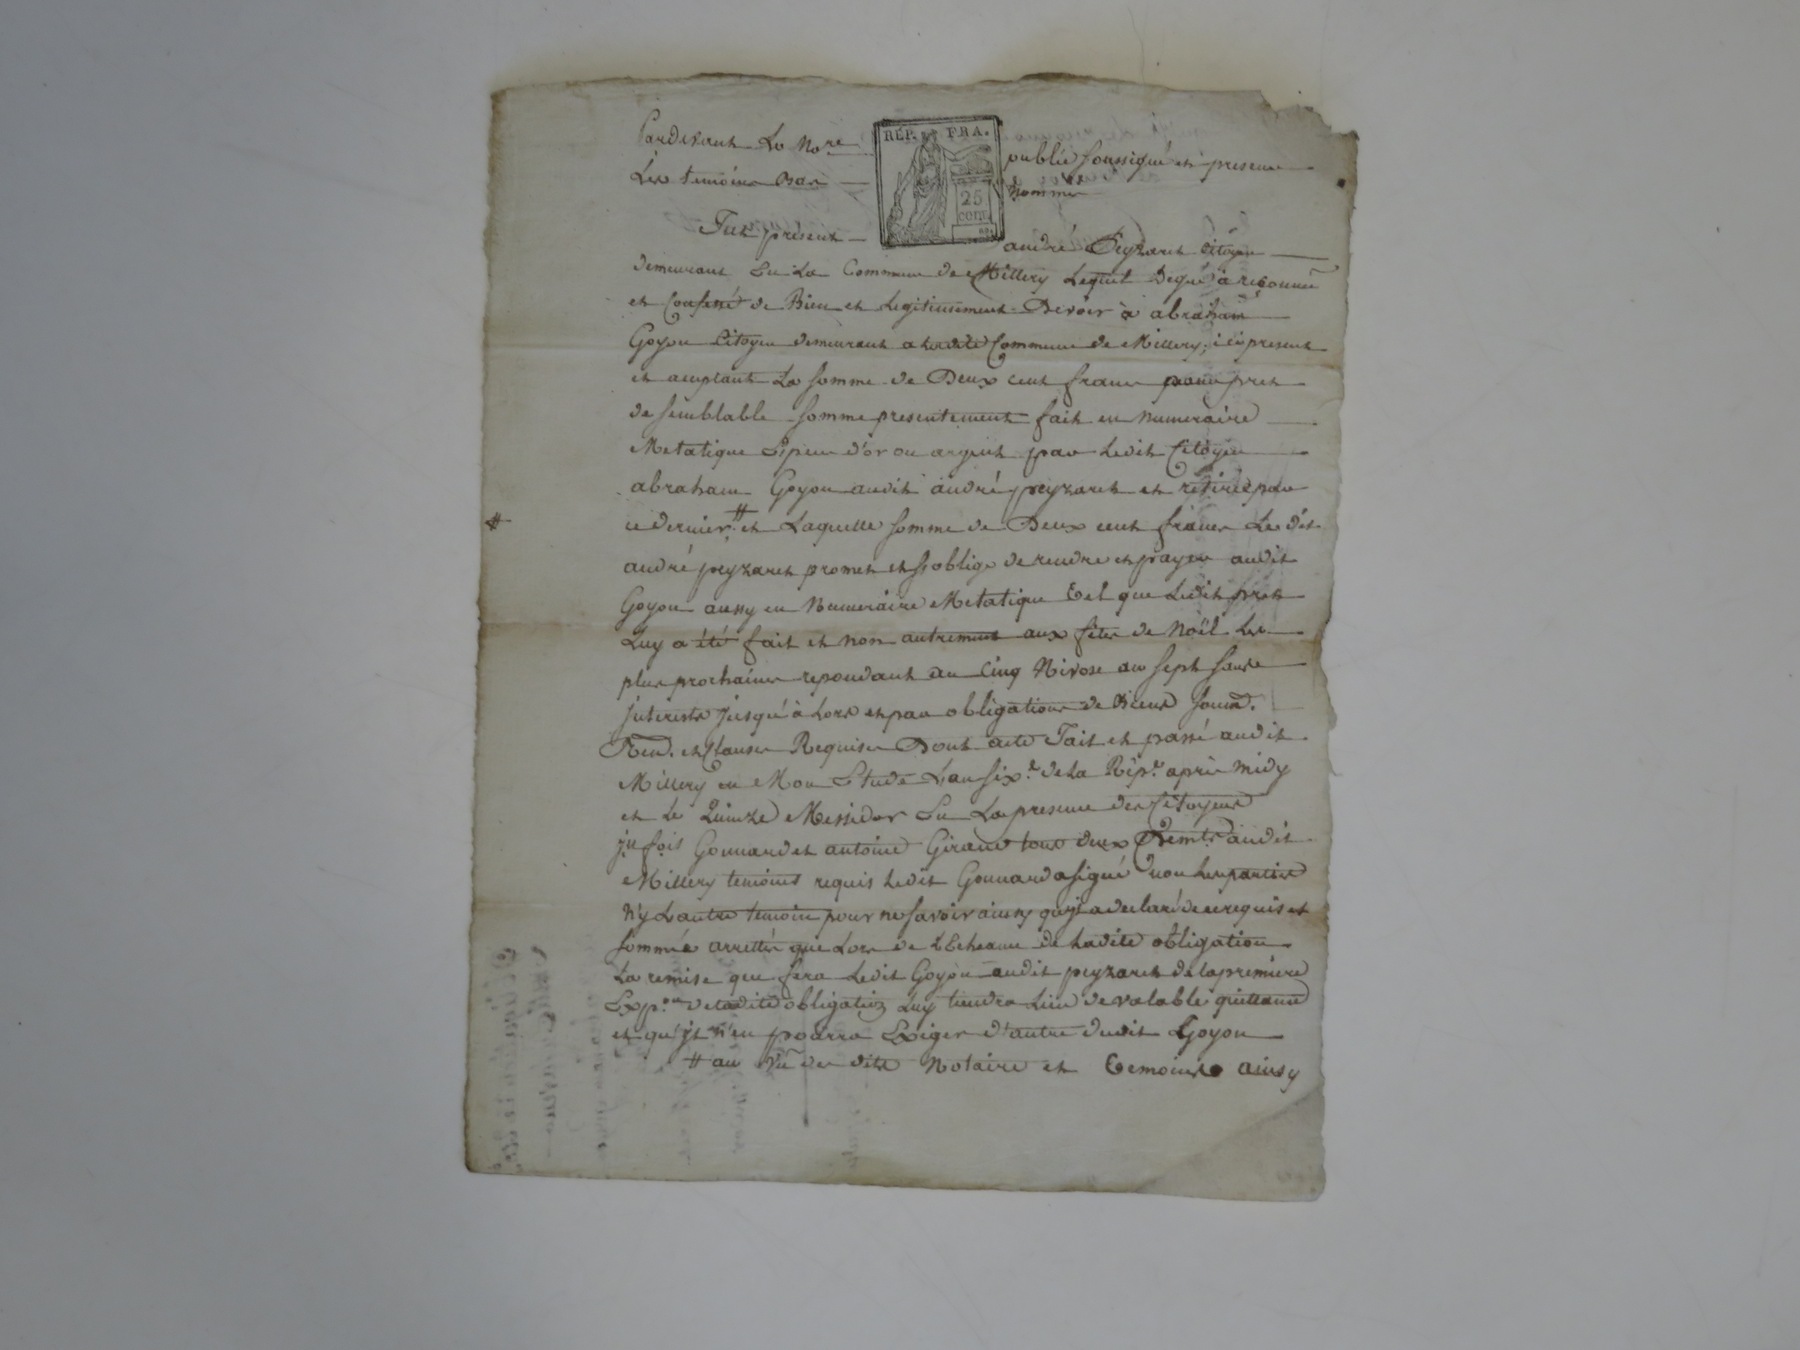 Pardevant Le No.re public soussigné en presence
REP. FRA.
25
CENT.
Les temoins Bas nommés
Fut présent andré Peyzaret Citoyen
demeurant En La Commune de Millery Lequel Degré à reconnu
et Confessé de Bien et Legitimement Devoir à abraham
Goyou Citoyen demeurant a Ladite Commune de Millery, ici present
et aceptant La somme de Deux cent francs pour pret
de semblable somme presentement fait en numeraire
Metatique Espece d'or ou argent par Ledit Citoyen
abraham Goyou audit andré peyzaret et retiré par
# ce dernier # et Laquelle somme de Deux cent francs Le dit
andré peyzaret promet et s'oblige de rendre et payer audit
Goyou aussy en Numeraire Metatique tel que Ledit pret
Luy a été fait et non autrement aux fêtes de Noël Les
plus prochaines repondant au Cinq Nivose au sept sans
interests jusqu'à Lors et par obligations de Biens soum.
Ren. et Clauses Requises Dont acte Fait et passé audit
Millery en Mon Etude L'an six.e de La Rép.e après midy
et Le Quinze Messidor En La presence des Citoyens
Gonnard et antoine Giraud tous deux Dem.ts audit
Millery temoins requis Ledit Gonnard a signé non Les parties
n'y L'autre temoin pour ne savoir ainsy qu'jl a declaré de ce requis et
sommés arretté que Lors de L'Echeance de Ladite obligation
La remise que fera Ledit Goyou audit peyzaret de La premiere
Exp.on de Ladite obligation Luy tiendra Lieu de valable quittance
et qu'jl n'en pourra Exiger d'autre dudit Goyou
# au vû des dits Notaire et temoins ainsy